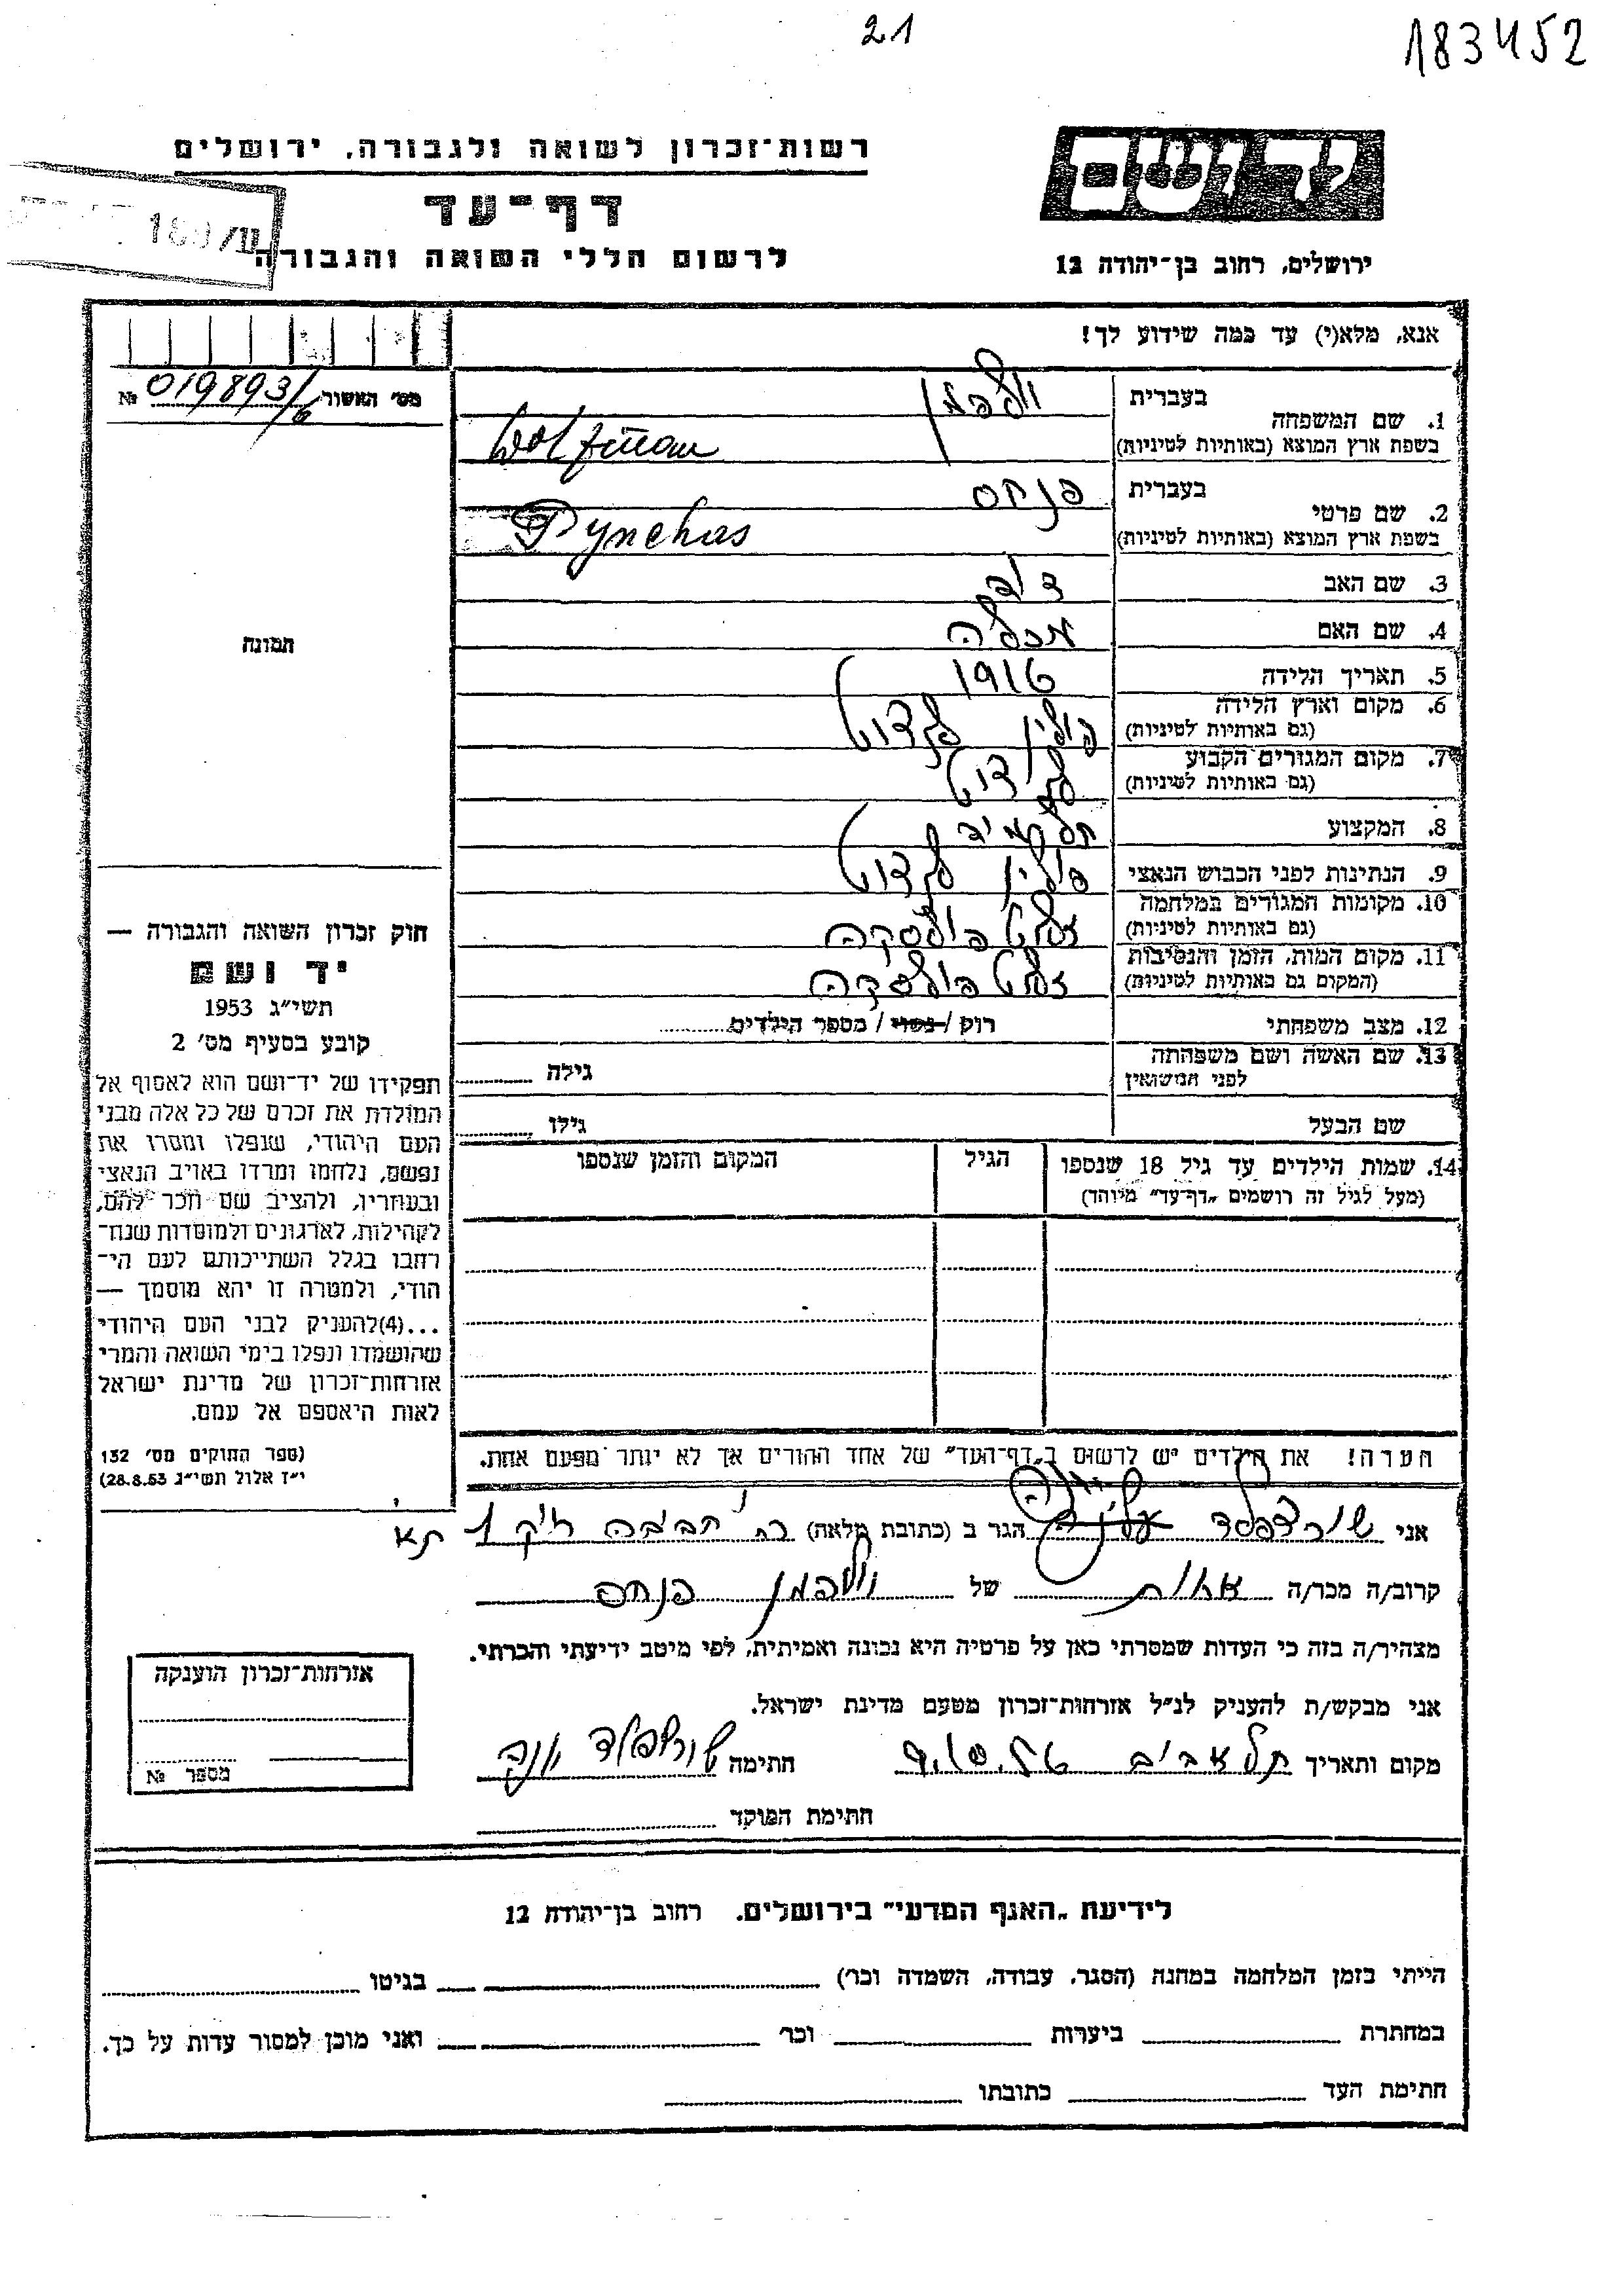 21
183452
רשות-זכרון לשואה ולגבורה, ירושלים
דף-עד
לרשום חללי השואה והגבורה
יד ושם
ירושלים, רחוב בן-יהודה 12
אנא, מלא(י) עד כמה שידוע לך!
מס׳ האשור 019893/6 №
1. שם המשפחה
בעברית וולפמן
בשפת ארץ המוצא (באותיות לטיניות) Wolfman
2. שם פרטי
בעברית פנחס
בשפת ארץ המוצא (באותיות לטיניות) Pynchas
3. שם האב דוד
4. שם האם
5. תאריך הלידה 1916
6. מקום וארץ הלידה פולין
(גם באותיות לטיניות)
7. מקום המגורים הקבוע
(גם באותיות לטיניות)
8. המקצוע תלמיד
9. הנתינות לפני הכבוש הנאצי פולין
10. מקומות המגורים במלחמה
(גם באותיות לטיניות)
11. מקום המות, הזמן והנסיבות
(המקום גם באותיות לטיניות)
12. מצב משפחתי רוק / נשוי / מספר הילדים
13. שם האשה ושם משפחתה גילה
לפני הנישואין
שם הבעל גילו
14. שמות הילדים עד גיל 18 שנספו הגיל המקום והזמן שנספו
(מעל לגיל זה רושמים „דף-עד״ מיוחד)
הערה! את הילדים יש לרשום ב„דף-העד״ של אחד ההורים אך לא יותר מפעם אחת.
תמונה
חוק זכרון השואה והגבורה —
יד ושם
תשי״ג 1953
קובע בסעיף מס׳ 2
תפקידו של יד-ושם הוא לאסוף אל
המולדת את זכרם של כל אלה מבני
העם היהודי, שנפלו ומסרו את
נפשם, נלחמו ומרדו באויב הנאצי
ובעוזריו, ולהציב שם וזכר להם,
לקהילות, לארגונים ולמוסדות שנח-
רחבו בגלל השתייכותם לעם הי-
הודי, ולמטרה זו יהא מוסמך —
...(4)להעניק לבני העם היהודי
שהושמדו ונפלו בימי השואה והמרי
אזרחות-זכרון של מדינת ישראל
לאות היאספם אל עמם.
(ספר החוקים מס׳ 132
י״ז אלול תשי״ג 28.8.53)
אני שורצפלד יונה הגר ב (כתובת מלאה) רח׳ ת״א
קרוב/ה מכר/ה אחות של וולפמן פנחס
מצהיר/ה בזה כי העדות שמסרתי כאן על פרטיה היא נכונה ואמיתית, לפי מיטב ידיעתי והכרתי.
אני מבקש/ת להעניק לנ״ל אזרחות-זכרון מטעם מדינת ישראל.
מקום ותאריך תל אביב חתימה שורצפלד יונה
חתימת הפוקד
אזרחות-זכרון הוענקה
מספר №
לידיעת „האגף המדעי״ בירושלים. רחוב בן-יהודה 12
הייתי בזמן המלחמה במחנה (הסגר, עבודה, השמדה וכו׳) בגיטו
במחתרת ביערות וכו׳ ואני מוכן למסור עדות על כך.
חתימת העד כתובתו